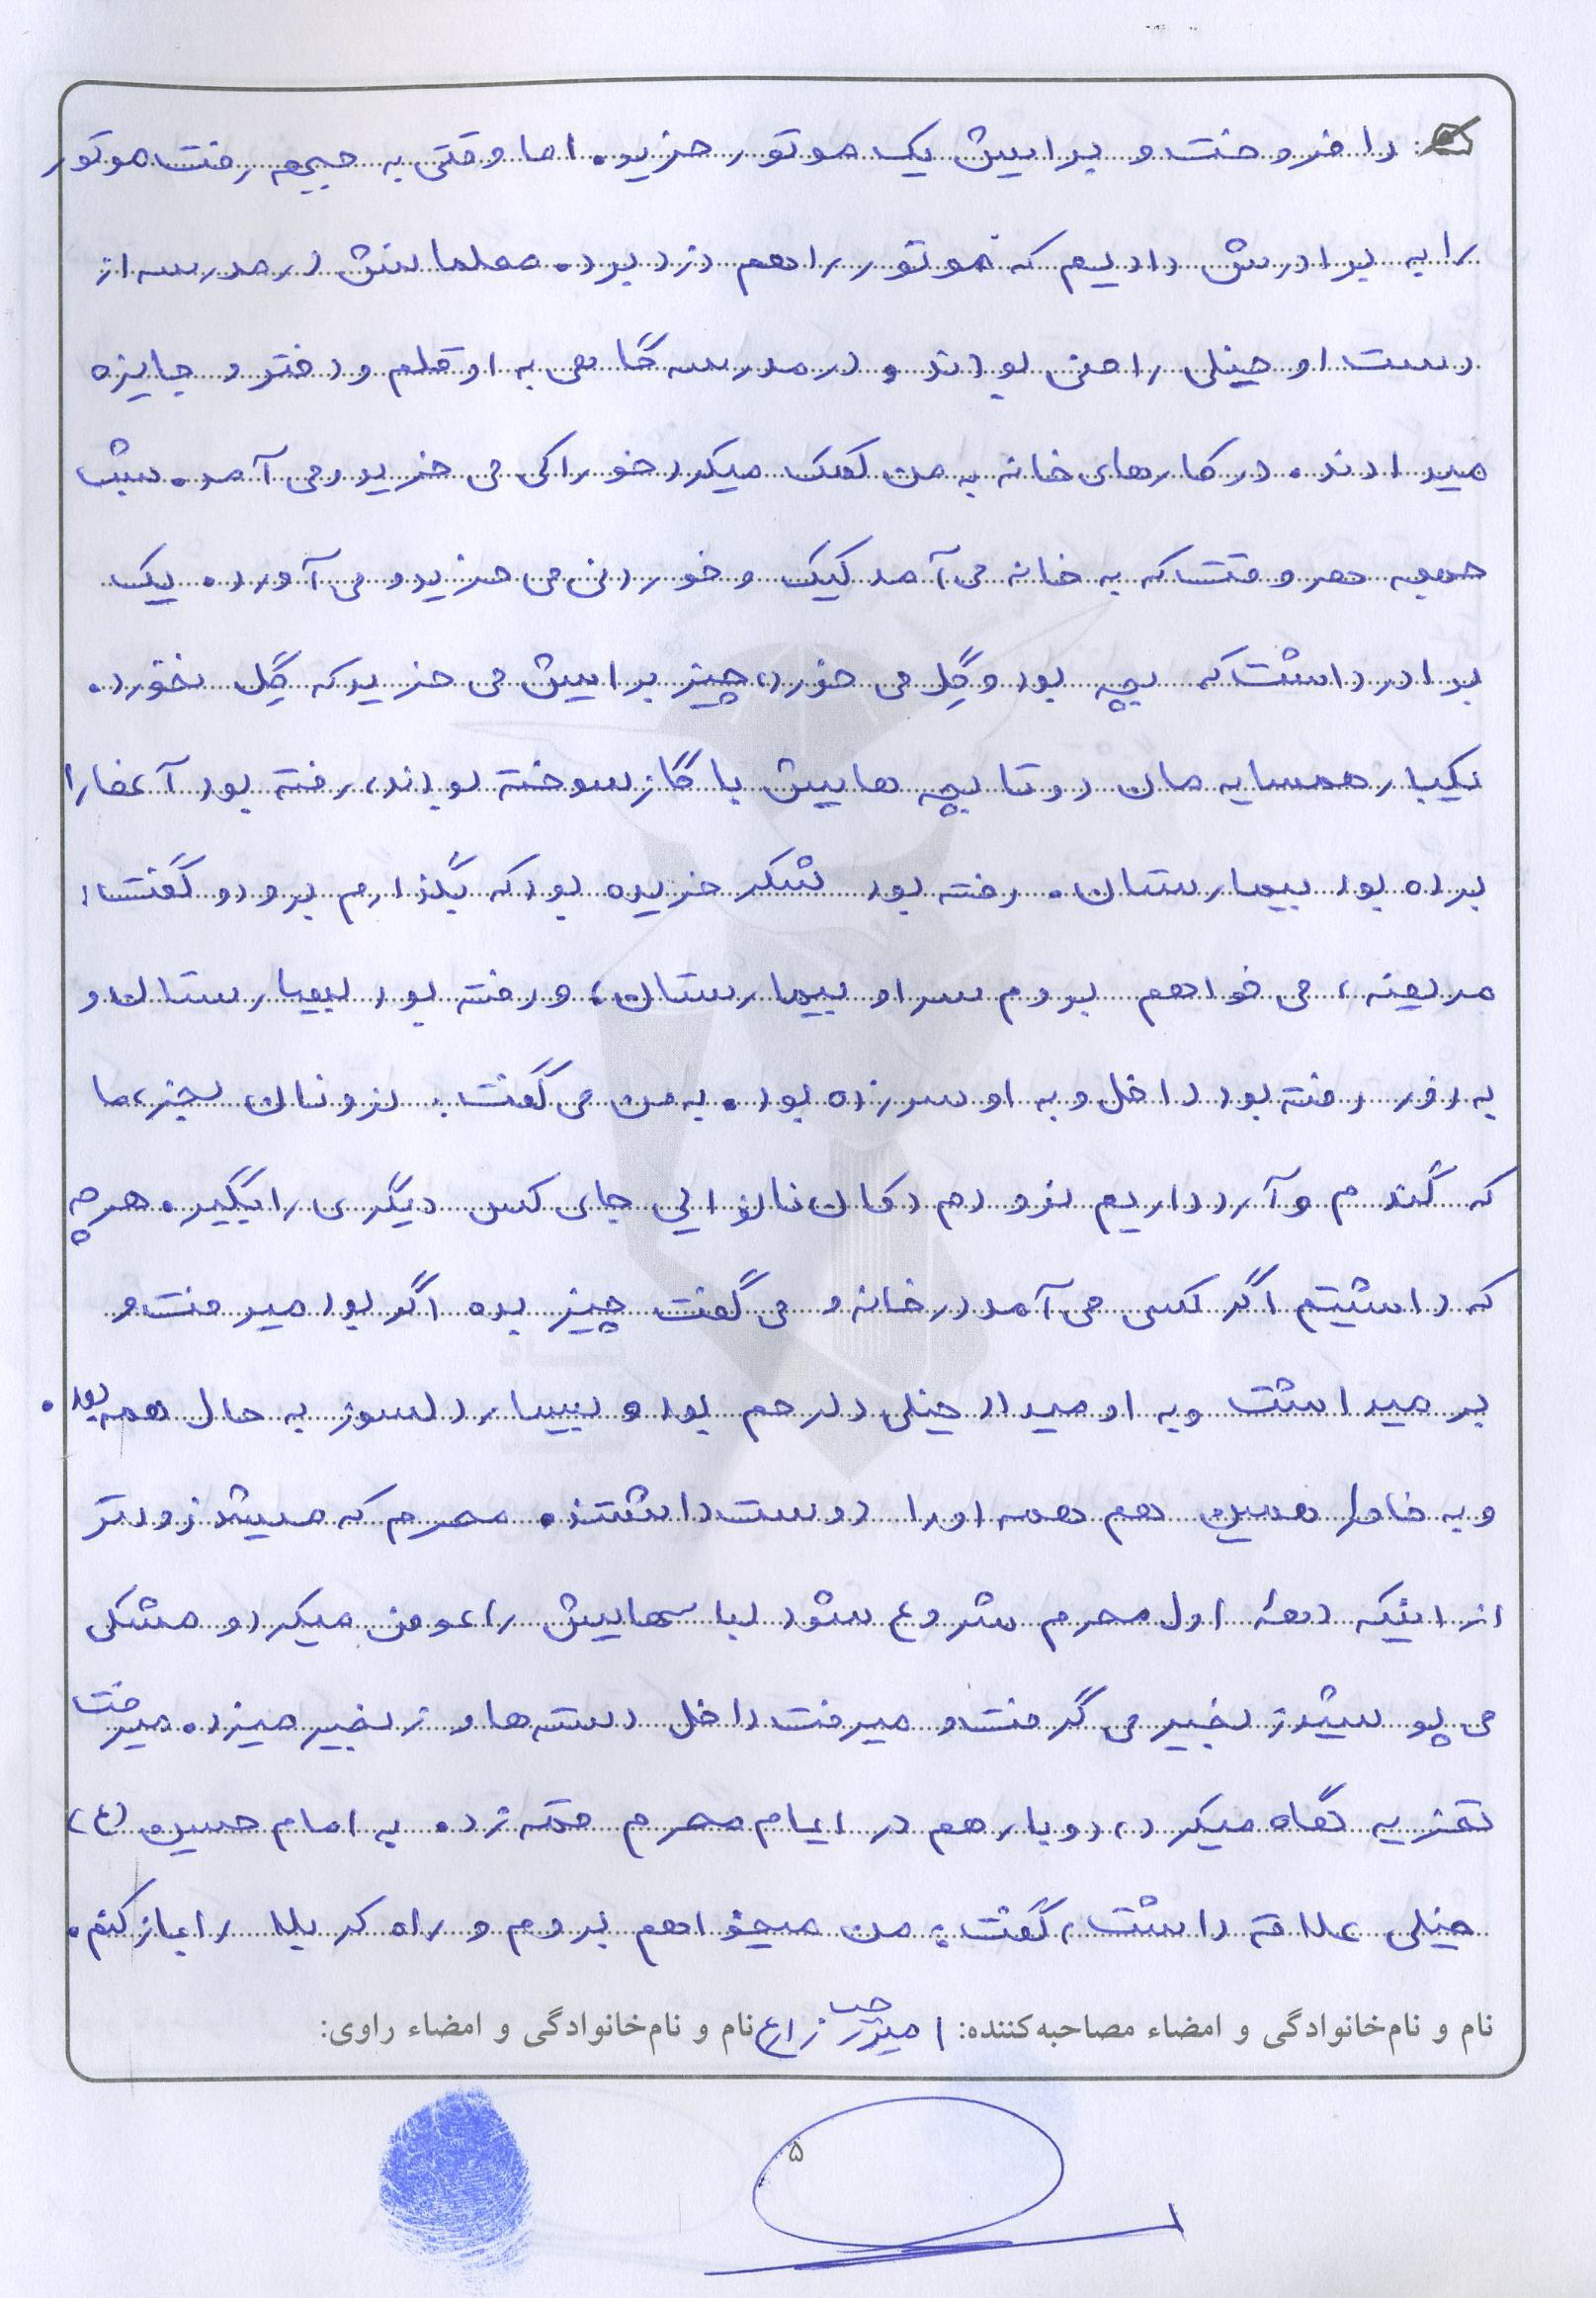 را فروخت و برایش یک موتور خرید. اما وقتی به جبهه رفت موتور
را به برادرش دادیم که موتور را هم دزد برد. معلمانش در مدرسه از
دست او خیلی راضی بودند و در مدرسه گاهی به او قلم و دفتر و جایزه
میدادند. در کارهای خانه به من کمک میکرد خوراکی می خرید و می آمد. شب
جمعه هر وقت که به خانه می آمد کیک و خوردنی می خرید و می آورد. یک
برادر داشت که بچه بود و گِل می خورد، چیز برایش می خرید که گِل نخورد.
یکبار همسایه مان دو تا بچه هایش با گاز سوخته بودند، رفته بود آنها را
برده بود بیمارستان. رفته بود شکر خریده بود که بگذارم برود و گفت:
مریضه، می خواهم بروم سر او بیمارستان، و رفته بود بیمارستان و
به زور رفته بود داخل و به او سر زده بود. به من می گفت: برو نان بپز، ما
که گندم و آرد داریم نرو دم دکان نانوایی جای کس دیگری را بگیر. هر چه
که داشتیم اگر کسی می آمد در خانه و می گفت چیز بده اگر بود میرفت و
بر میداشت و به او میداد خیلی دلرحم بود و بسیار دلسوز به حال همه بود.
و به خاطر همین هم همه او را دوست داشتند. محرم که میشد زودتر
از اینکه دههٔ اول محرم شروع شود لباسهایش را عوض میکرد و مشکی
می پوشید زنجیر می گرفت و میرفت داخل دسته ها و زنجیر میزد. میرفت
تعزیه نگاه میکرد، دوبار هم در ایام محرم قمه زد. به امام حسین (ع)
خیلی علاقه داشت، گفت: من میخواهم بروم و راه کربلا را باز کنم.
نام و نام‌خانوادگی و امضاء مصاحبه‌کننده: زارع نام و نام‌خانوادگی و امضاء راوی:
۵